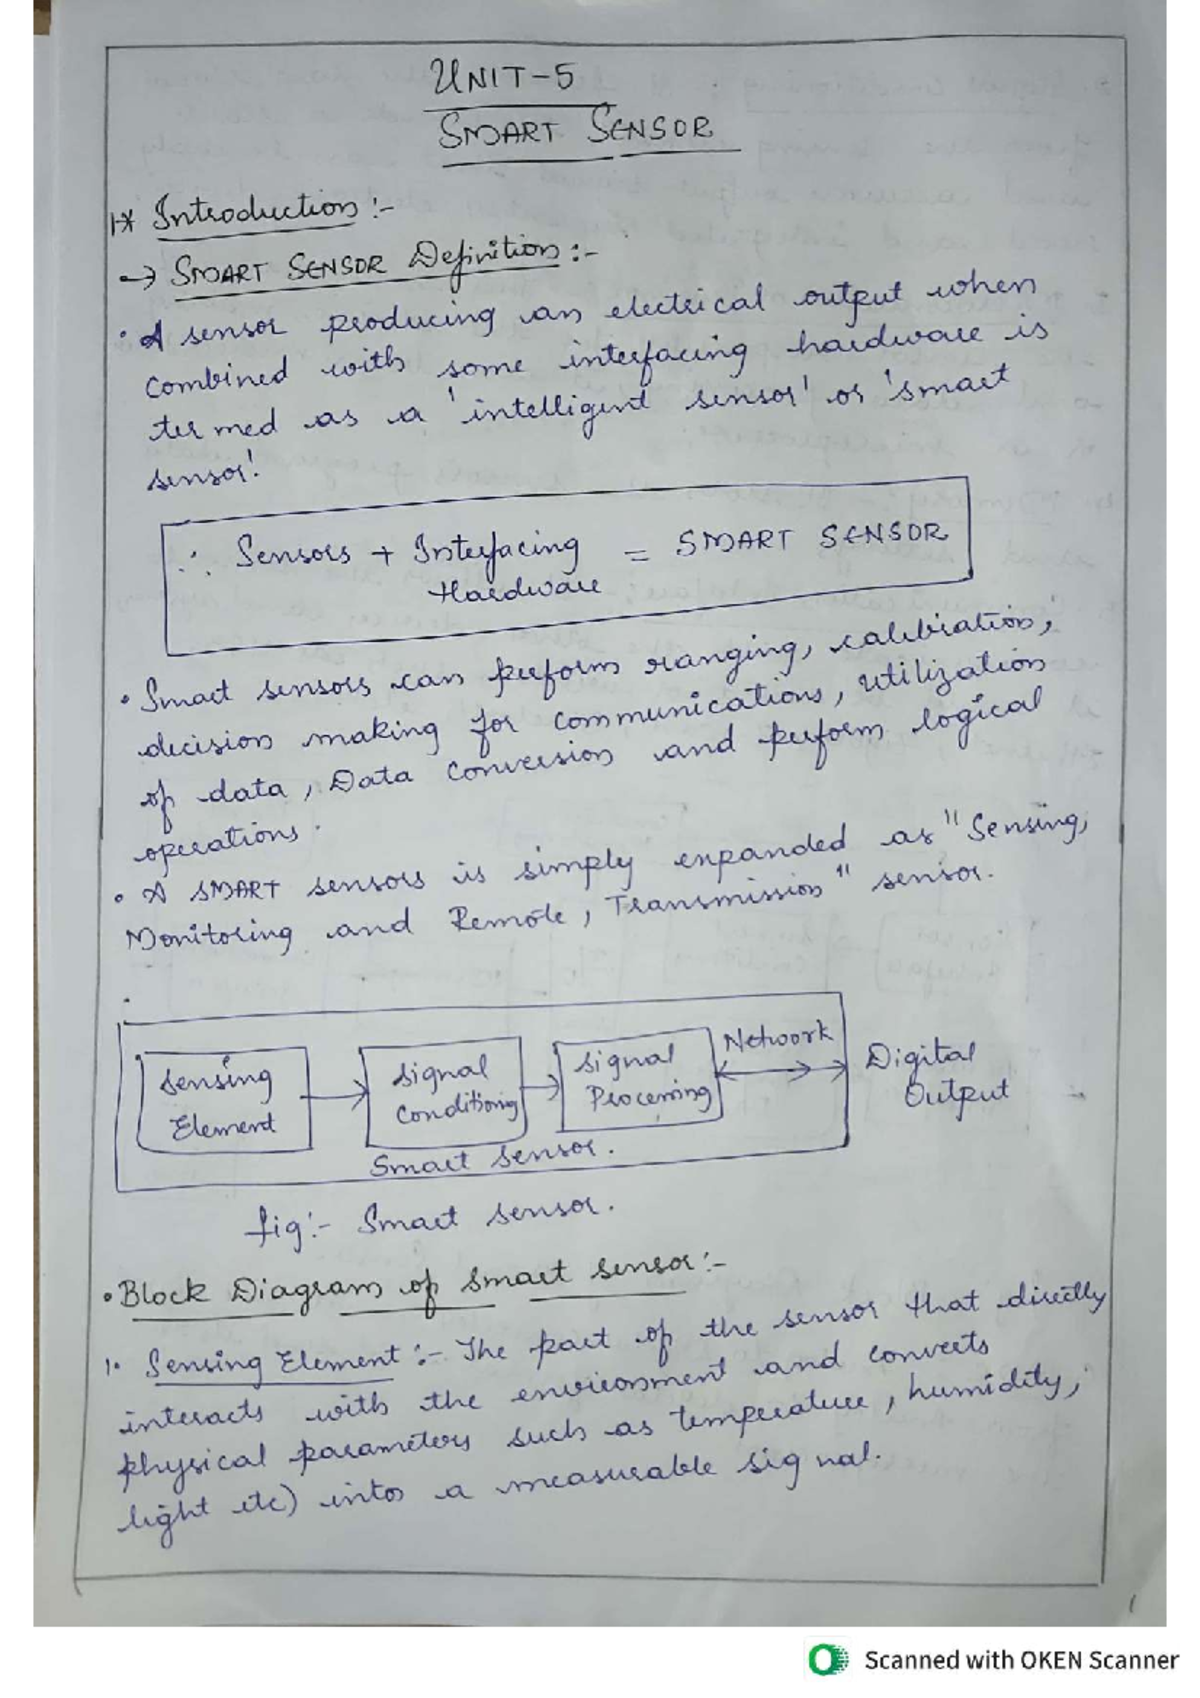 UNIT-5
SMART SENSOR
1* Introduction :-
→ SMART SENSOR Definition :-
• A sensor producing an electrical output when
combined with some interfacing hardware is
termed as a 'intelligent sensor' or 'smart
sensor'.
∴ Sensors + Interfacing = SMART SENSOR
Hardware
• Smart sensors can perform ranging, calibration,
decision making for communications, utilization
of data, Data conversion and perform logical
operations.
• A SMART sensors is simply expanded as "Sensing,
Monitoring and Remote, Transmission" sensor.
Sensing Element
Signal Conditioning
Signal Processing
Network
Digital Output
Smart sensor.
fig:- Smart sensor.
• Block Diagram of Smart sensor :-
1. Sensing Element :- The part of the sensor that directly
interacts with the environment and converts
physical parameters such as temperature, humidity,
light etc) into a measurable signal.
1
Scanned with OKEN Scanner